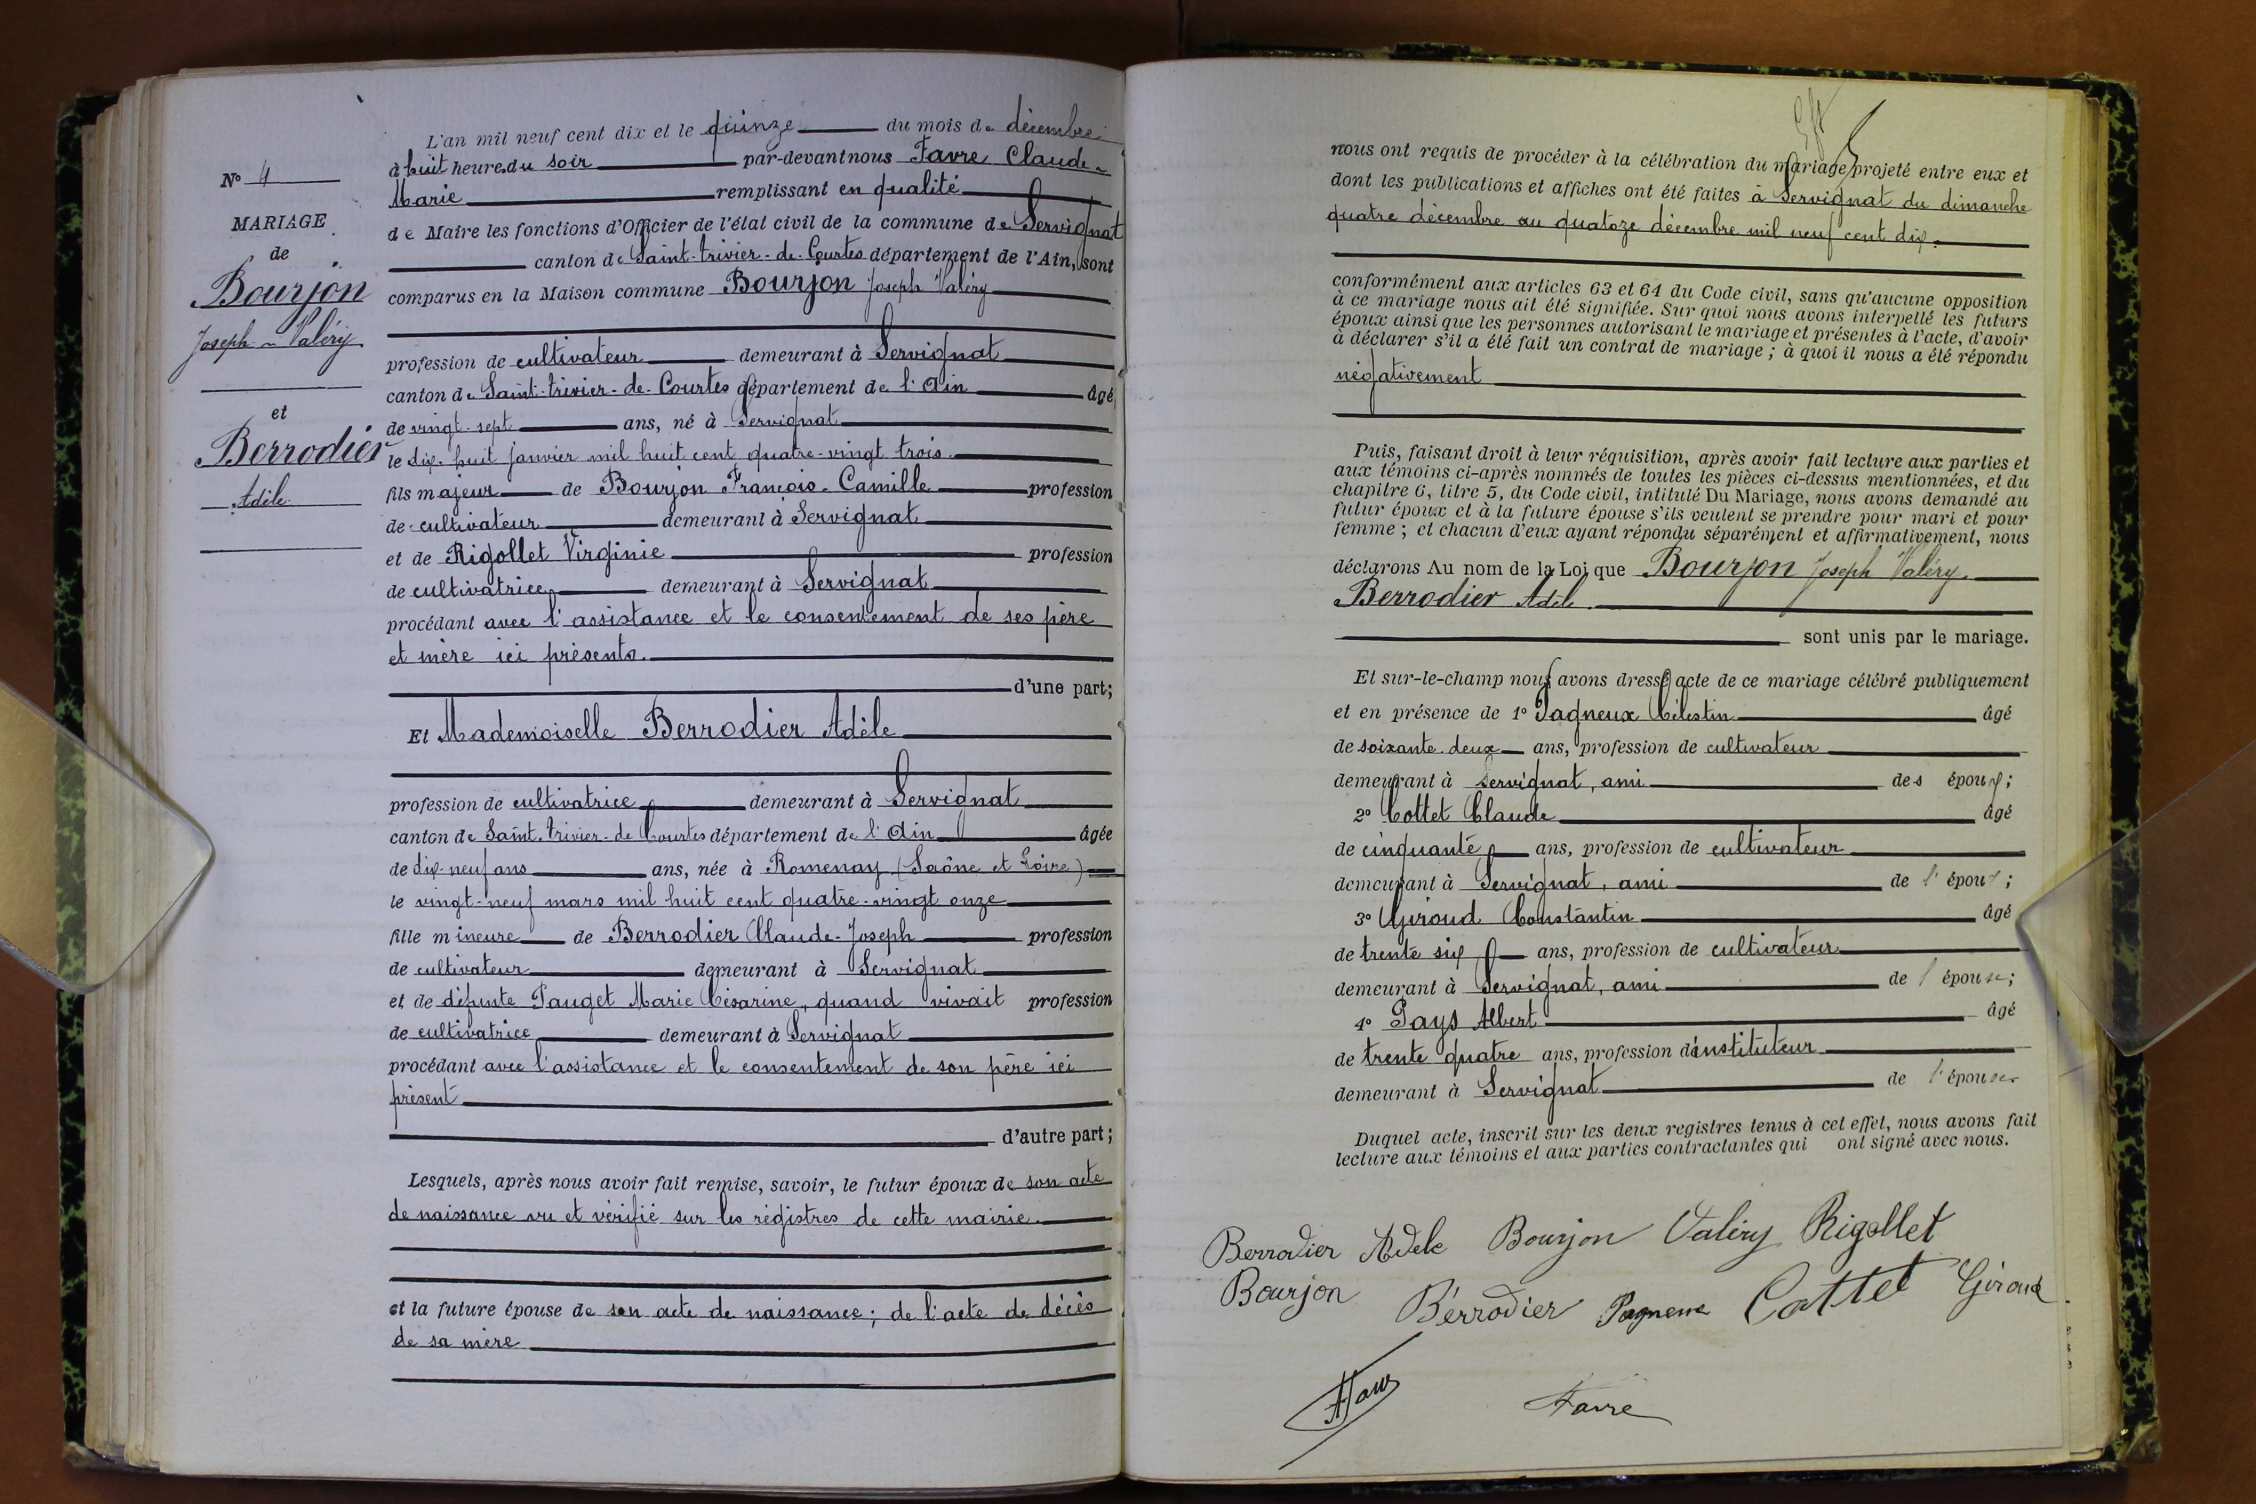 N° 4
MARIAGE
de
Bourjon
Joseph-Valéry
et
Berrodier
Adèle
L'an mil neuf cent dix et le quinze du mois de décembre
à huit heures du soir par-devant nous Favre Claude-
Marie remplissant en qualité
de Maire les fonctions d'Officier de l'état civil de la commune de Servignat
canton de Saint-trivier-de-Courtes département de l'Ain, sont
comparus en la Maison commune Bourjon Joseph Valéry
profession de cultivateur demeurant à Servignat
canton de Saint-trivier-de-Courtes département de l'Ain âgé
de vingt-sept ans, né à Servignat
le dix-huit janvier mil huit cent quatre-vingt trois
fils majeur de Bourjon François-Camille profession
de cultivateur demeurant à Servignat
et de Rigollet Virginie profession
de cultivatrice demeurant à Servignat
procédant avec l'assistance et le consentement de ses père
et mère ici présents.
d'une part;
Et Mademoiselle Berrodier Adèle
profession de cultivatrice demeurant à Servignat
canton de Saint-trivier-de Courtes département de l'Ain âgée
de dix-neuf ans ans, née à Romenay (Saône et Loire)
le vingt-neuf mars mil huit cent quatre-vingt onze
fille mineure de Berrodier Claude-Joseph profession
de cultivateur demeurant à Servignat
et de défunte Pauget Marie Césarine, quand vivait profession
de cultivatrice demeurant à Servignat
procédant avec l'assistance et le consentement de son père ici
présent
d'autre part;
Lesquels, après nous avoir fait remise, savoir, le futur époux de son acte
de naissance vu et vérifié sur les régistres de cette mairie.
et la future épouse de son acte de naissance; de l'acte de décès
de sa mère
nous ont requis de procéder à la célébration du mariage projeté entre eux et
dont les publications et affiches ont été faites à Servignat du dimanche
quatre décembre au quatoze décembre mil neuf cent dix.
conformément aux articles 63 et 64 du Code civil, sans qu'aucune opposition
à ce mariage nous ait été signifiée. Sur quoi nous avons interpellé les futurs
époux ainsi que les personnes autorisant le mariage et présentes à l'acte, d'avoir
à déclarer s'il a été fait un contrat de mariage; à quoi il nous a été répondu
négativement
Puis, faisant droit à leur réquisition, après avoir fait lecture aux parties et
aux témoins ci-après nommés de toutes les pièces ci-dessus mentionnées, et du
chapitre 6, titre 5, du Code civil, intitulé Du Mariage, nous avons demandé au
futur époux et à la future épouse s'ils veulent se prendre pour mari et pour
femme; et chacun d'eux ayant répondu séparément et affirmativement, nous
déclarons Au nom de la Loi que Bourjon Joseph Valéry.
Berrodier Adèle.
sont unis par le mariage.
Et sur-le-champ nous avons dressé acte de ce mariage célébré publiquement
et en présence de 1° Pagneux Célestin âgé
de soixante-deux ans, profession de cultivateur
demeurant à Servignat, ami des époux;
2° Cottet Claude âgé
de cinquante ans, profession de cultivateur
demeurant à Servignat, ami de l'époux;
3° Giroud Constantin âgé
de trente six ans, profession de cultivateur
demeurant à Servignat, ami de l'épouse;
4° Pays Albert âgé
de trente quatre ans, profession d'instituteur
demeurant à Servignat de l'épouse
Duquel acte, inscrit sur les deux registres tenus à cet effet, nous avons fait
lecture aux témoins et aux parties contractantes qui ont signé avec nous.
Berrodier Adele Bourjon Valéry Rigollet
Bourjon Bérrodier Pagneux Cottet Giroud
Favre